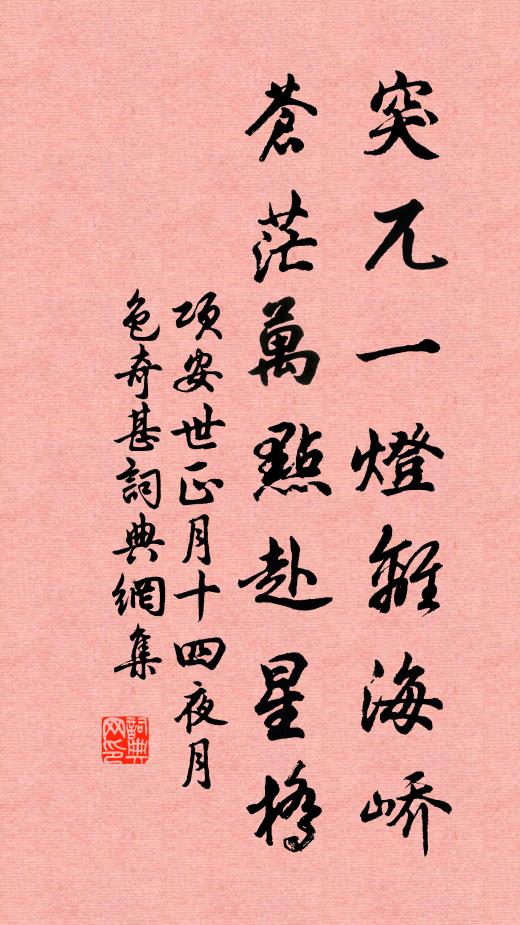 突兀一燈離海嶠
蒼茫萬點赴星橋
項安世正月十四夜月
色奇甚詞典網集
詞典
网印